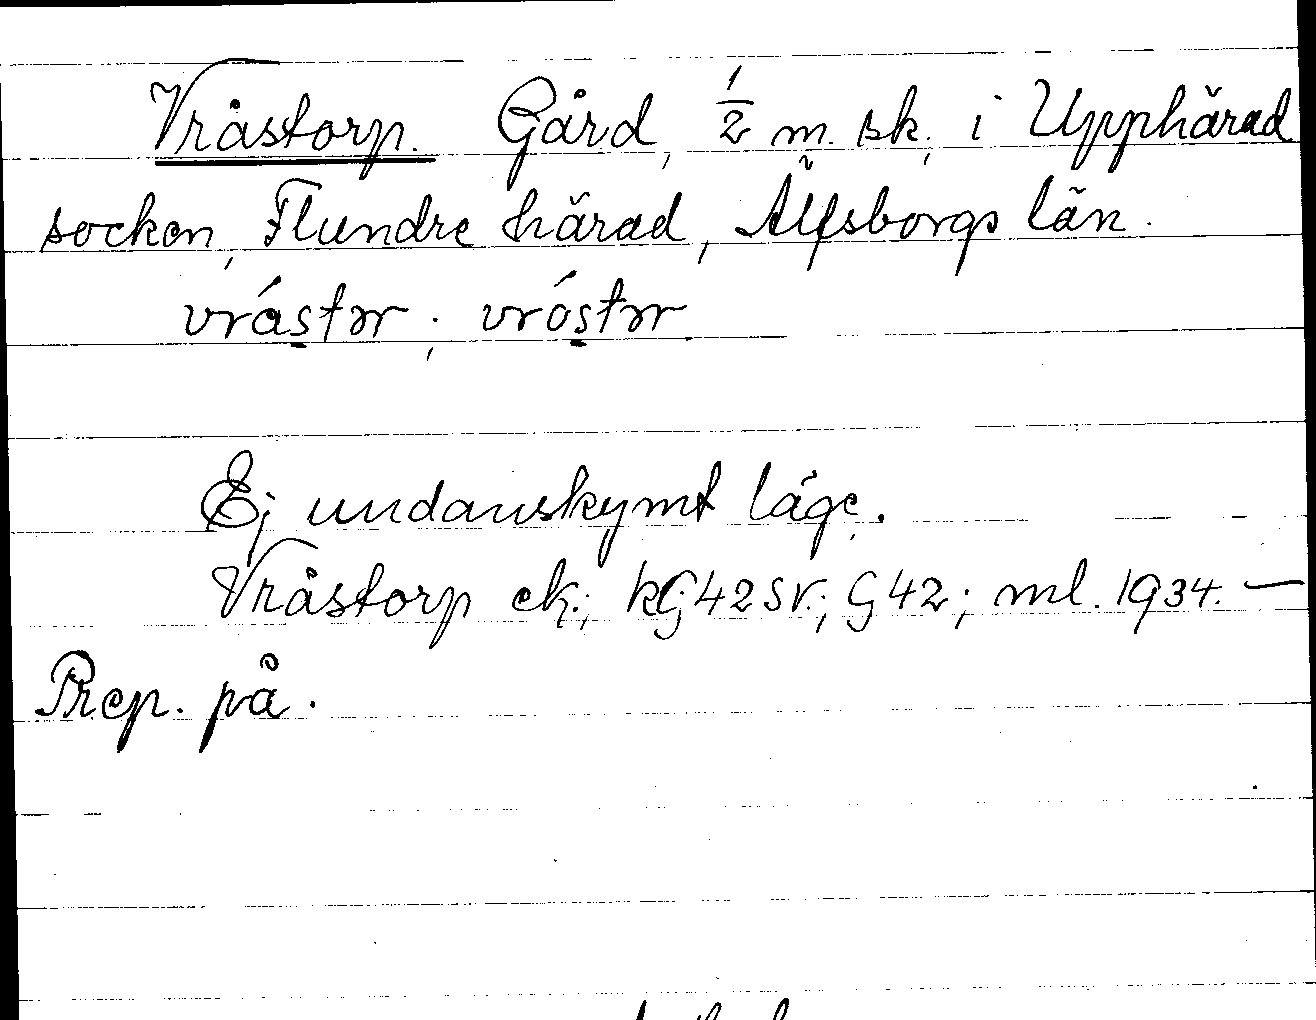 Vråstorp. Gård, ½ m. sk. i Upphärad
socken, Flundre härad, Älfsborgs län.
vrástər ; vróstər
Ej undanskymt läge.
Vråstorp ek.; kG42SV.; G42; ml. 1934. —
Prep. på.